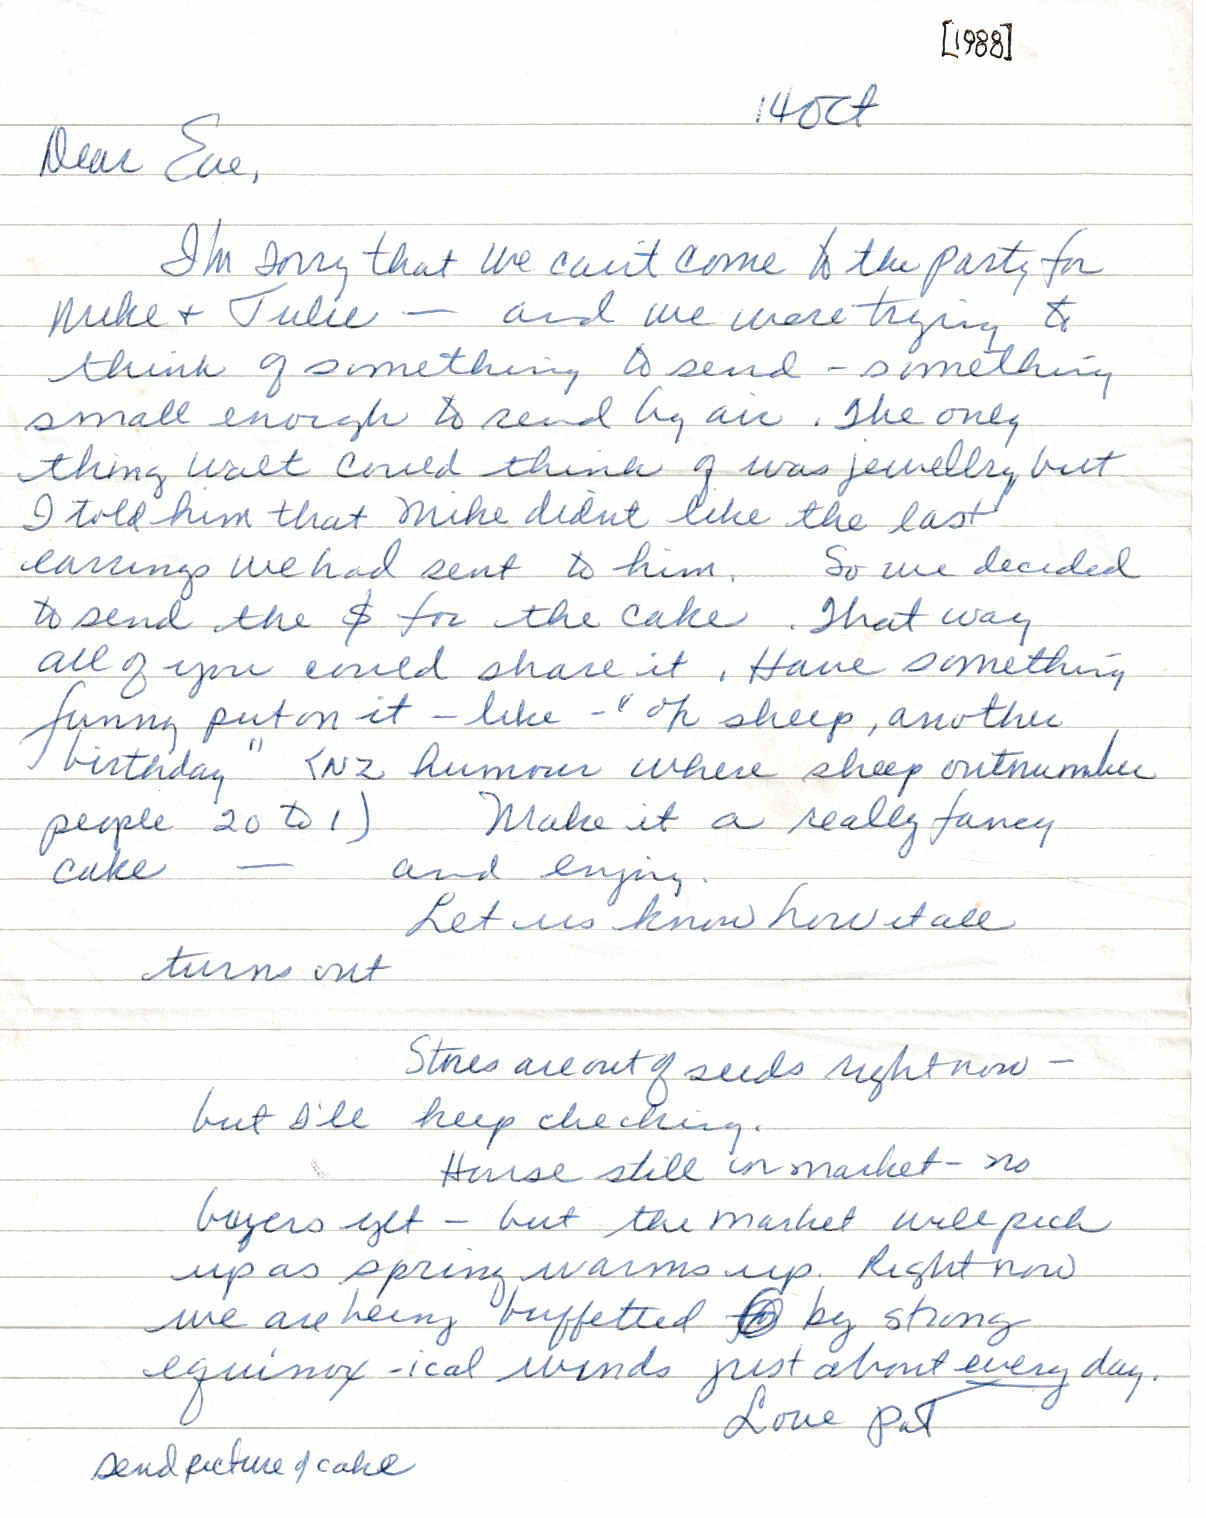 [1988]
14 Oct
Dear Eve,
I'm sorry that we can't come to the party for
Mike + Julie — and we were trying to
think of something to send - something
small enough to send by air. The only
thing Walt could think of was jewellry, but
I told him that Mike didn't like the last
earrings we had sent to him. So we decided
to send the $ for the cake. That way
all of you could share it. Have something
funny put on it - like - "oh sheep, another
birthday" (NZ humour where sheep outnumber
people 20 to 1) Make it a really fancy
cake — and enjoy.
Let us know how it all
turns out
Stores are out of seeds right now -
but I'll keep checking.
House still on market - no
buyers yet - but the market will pick
up as spring warms up. Right now
we are being buffetted by strong
equinox-ical winds just about every day.
Love Pat
send picture of cake